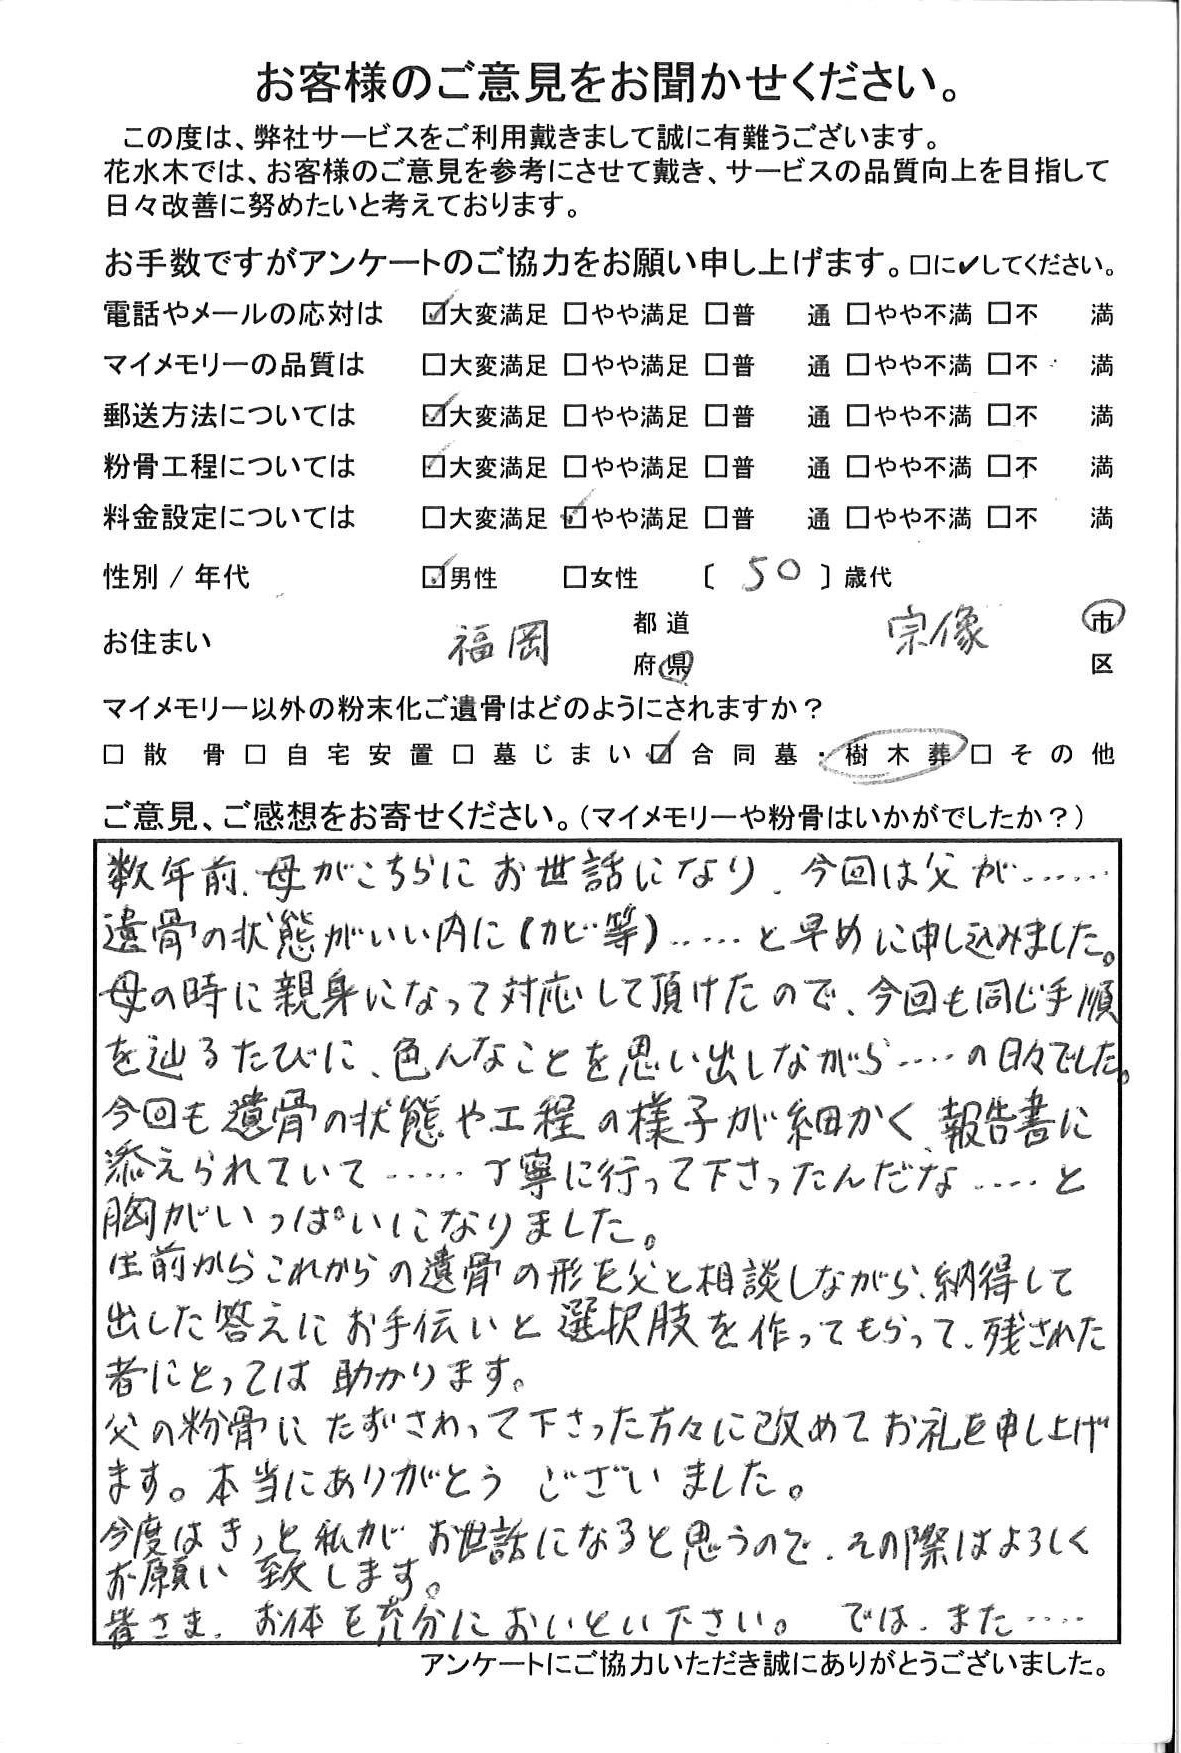 お客様のご意見をお聞かせください。
この度は、弊社サービスをご利用戴きまして誠に有難うございます。
花水木では、お客様のご意見を参考にさせて戴き、サービスの品質向上を目指して
日々改善に努めたいと考えております。
お手数ですがアンケートのご協力をお願い申し上げます。□に✔してください。
電話やメールの応対は ☑大変満足 □やや満足 □普 通 □やや不満 □不 満
マイメモリーの品質は □大変満足 □やや満足 □普 通 □やや不満 □不 満
郵送方法については ☑大変満足 □やや満足 □普 通 □やや不満 □不 満
粉骨工程については ☑大変満足 □やや満足 □普 通 □やや不満 □不 満
料金設定については □大変満足 ☑やや満足 □普 通 □やや不満 □不 満
性別 / 年代 ☑男性 □女性 〔 50 〕歳代
お住まい 福岡 都道府県 宗像 市区
マイメモリー以外の粉末化ご遺骨はどのようにされますか？
□散 骨 □自宅安置 □墓じまい ☑合同墓・樹木葬 □その他
ご意見、ご感想をお寄せください。（マイメモリーや粉骨はいかがでしたか？）
数年前、母がこちらにお世話になり、今回は父が……
遺骨の状態がいい内に(カビ等)……と早めに申し込みました。
母の時に親身になって対応して頂けたので、今回も同じ手順
を辿るたびに、色んなことを思い出しながら……の日々でした。
今回も遺骨の状態や工程の様子が細かく、報告書に
添えられていて……丁寧に行って下さったんだな……と
胸がいっぱいになりました。
生前からこれからの遺骨の形を父と相談しながら、納得して
出した答えにお手伝いと選択肢を作ってもらって、残された
者にとっては助かります。
父の粉骨にたずさわって下さった方々に改めてお礼を申し上げ
ます。本当にありがとうございました。
今度はきっと私がお世話になると思うので、その際はよろしく
お願い致します。
皆さま、お体を充分においとい下さい。では、また……
アンケートにご協力いただき誠にありがとうございました。